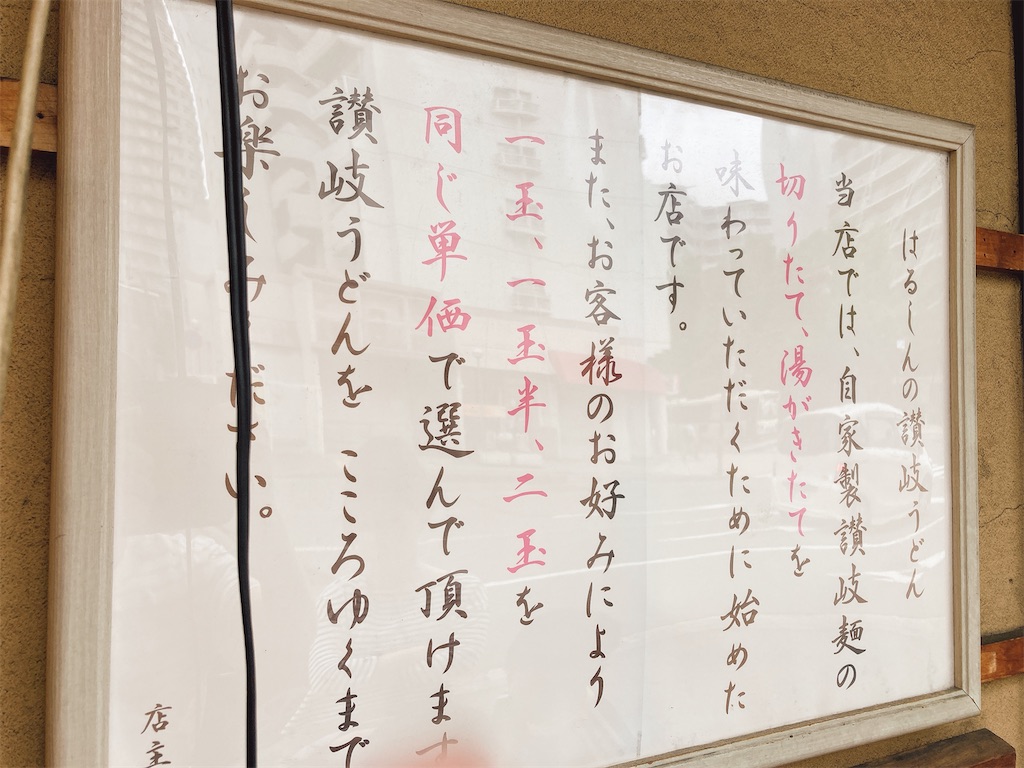 はるしんの讃岐うどん
当店では、自家製讃岐麺の
切りたて、湯がきたてを
味わっていただくために始めた
お店です。
また、お客様のお好みにより
一玉、一玉半、二玉を
同じ単価で選んで頂けます
讃岐うどんを こころゆくまで
お楽しみください。
店主